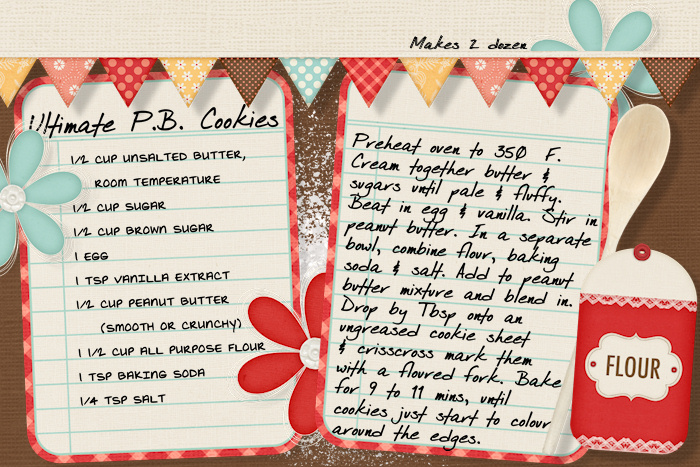 Makes 2 dozen
Ultimate P.B. Cookies
1/2 CUP UNSALTED BUTTER,
ROOM TEMPERATURE
1/2 CUP SUGAR
1/2 CUP BROWN SUGAR
1 EGG
1 TSP VANILLA EXTRACT
1/2 CUP PEANUT BUTTER
(SMOOTH OR CRUNCHY)
1 1/2 CUP ALL PURPOSE FLOUR
1 TSP BAKING SODA
1/4 TSP SALT
Preheat oven to 350 F.
Cream together butter &
sugars until pale & fluffy.
Beat in egg & vanilla. Stir in
peanut butter. In a separate
bowl, combine flour, baking
soda & salt. Add to peanut
butter mixture and blend in.
Drop by Tbsp onto an
ungreased cookie sheet
& crisscross mark them
with a floured fork. Bake
for 9 to 11 mins, until
cookies just start to colour
around the edges.
FLOUR